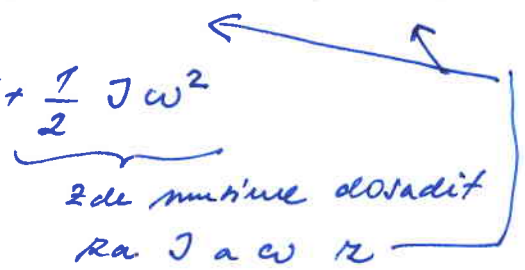 + 1/2 J ω²
zde musíme dosadit
za J a ω z